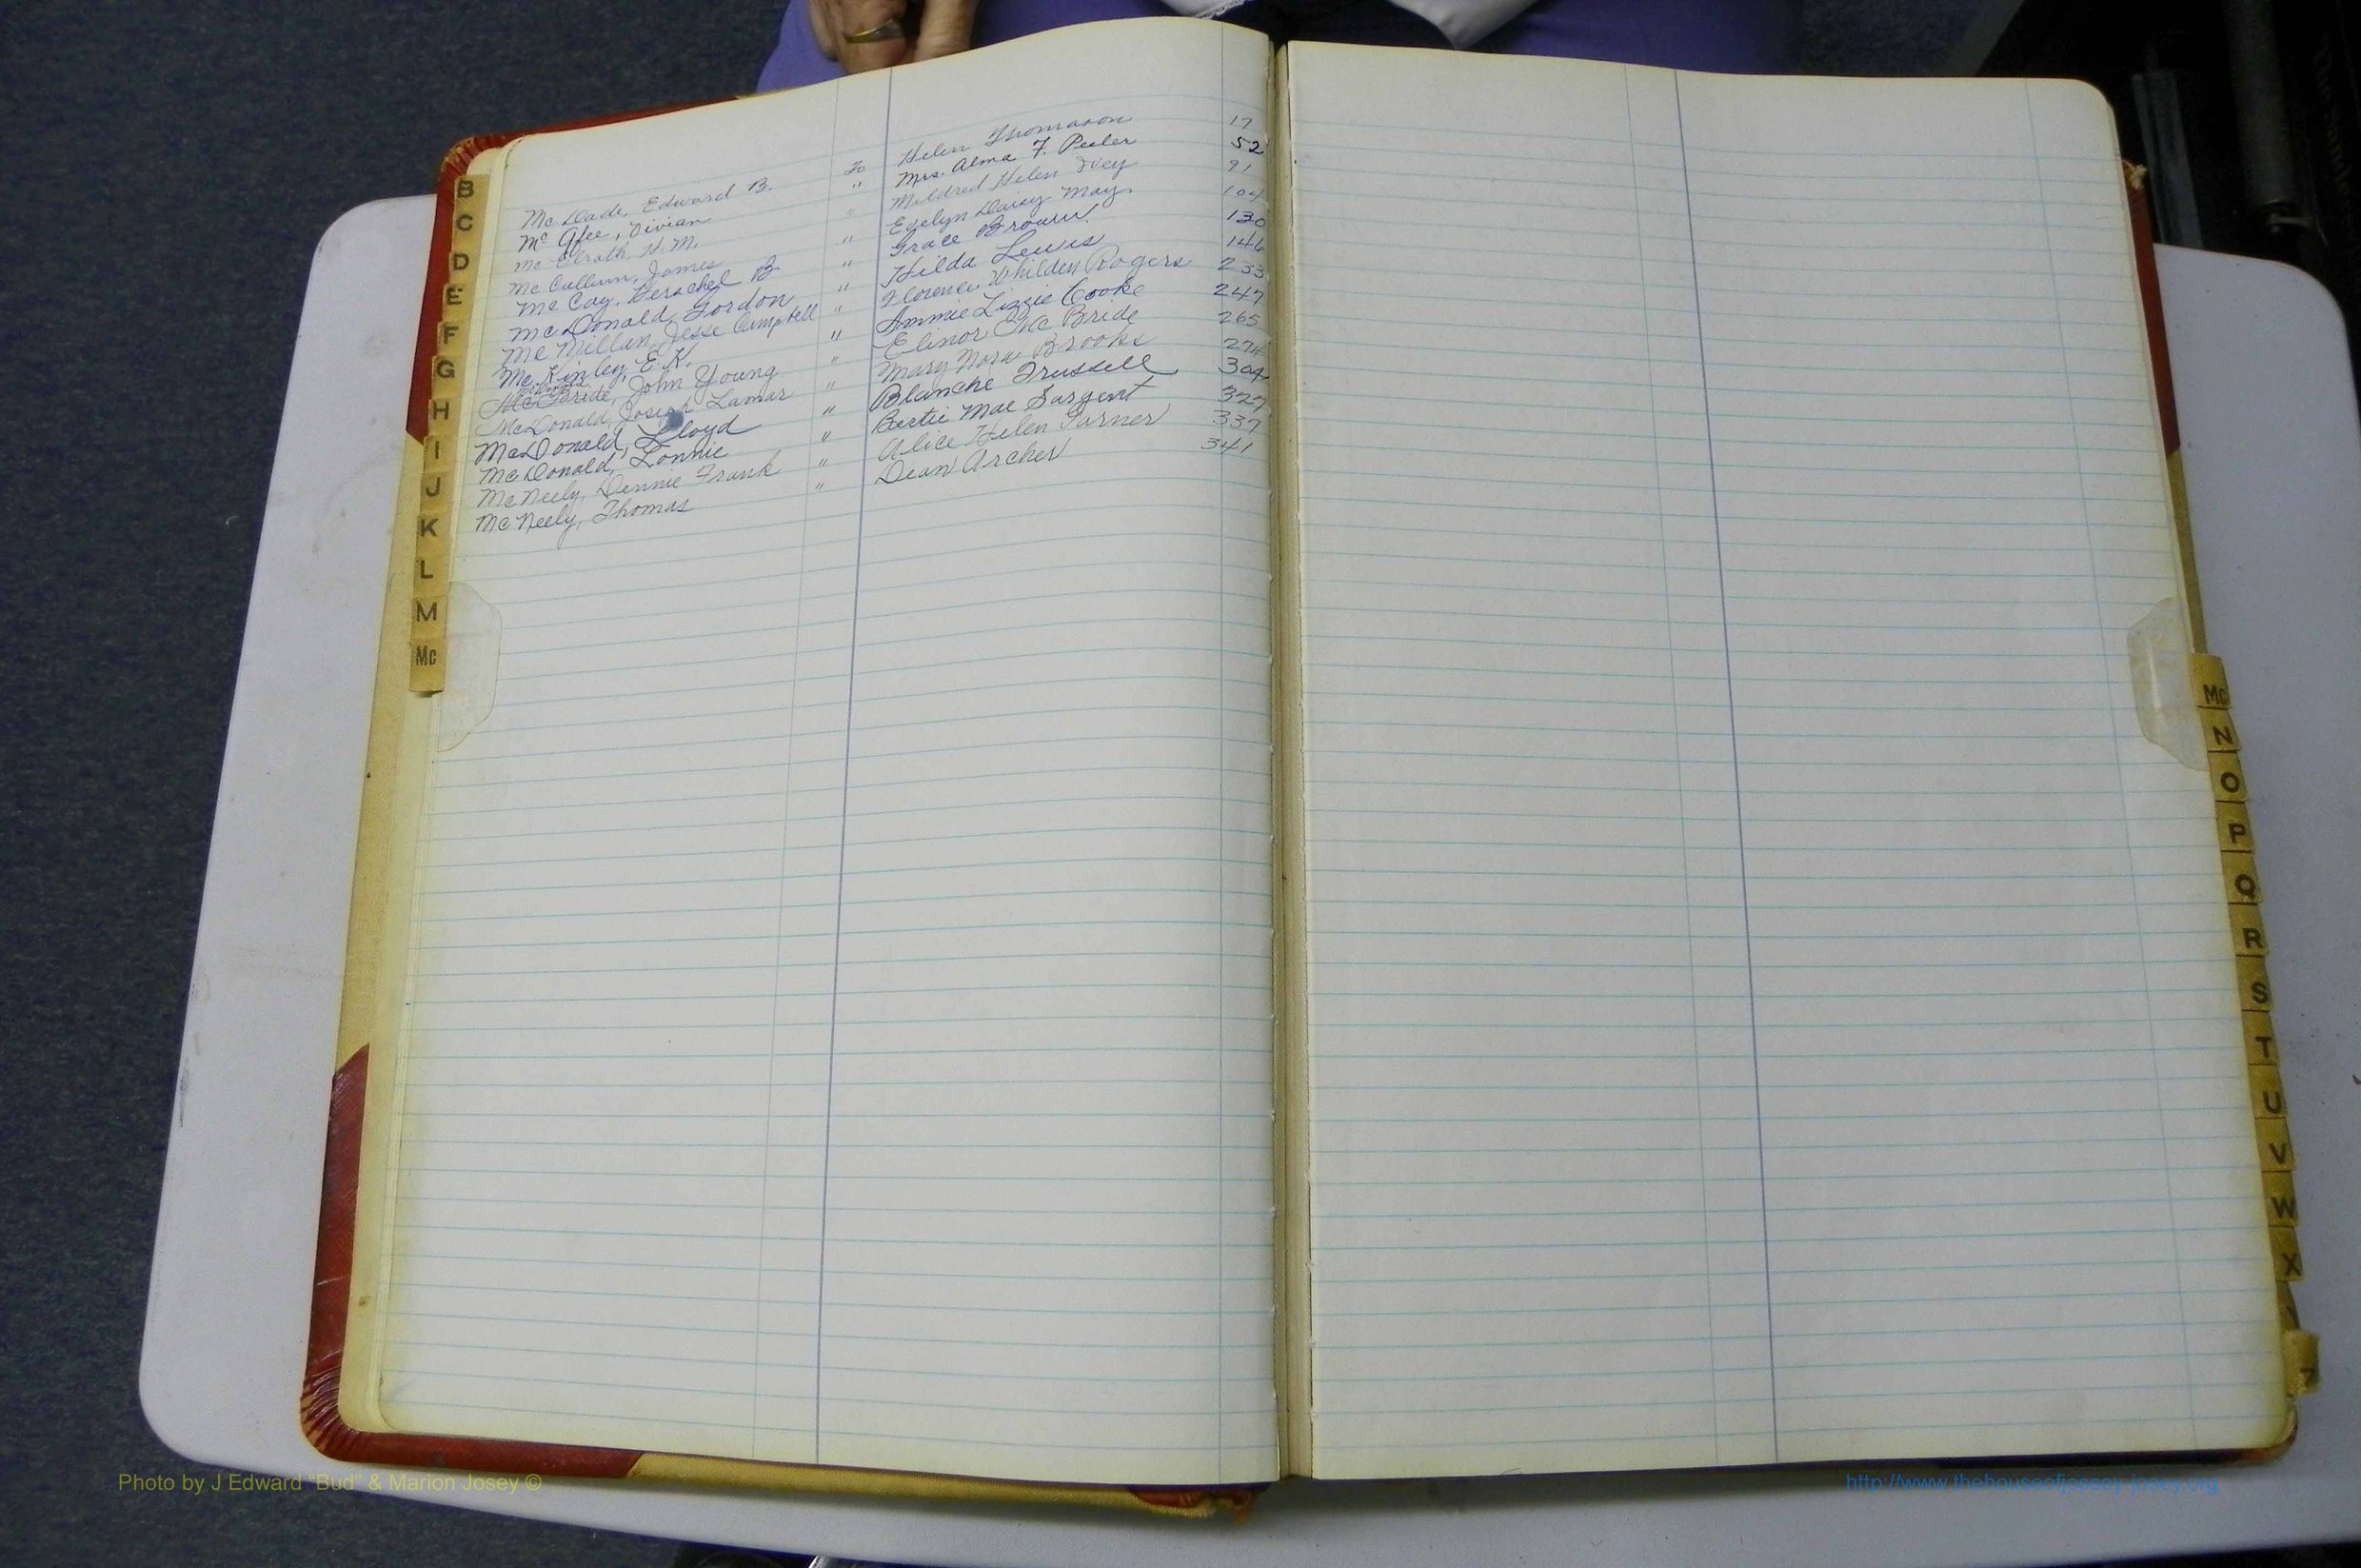 Mc Dade, Edward B. To Helen Thomason 17
Mc Afee, Vivian " Mrs. Alma F. Peeler 52
Mc Elrath, H. M. " Mildred Helen Ivey 91
Mc Cullum, James " Evelyn Daisy May 104
Mc Coy, Herschel B " Grace Brown 130
Mc Donald, Gordon " Hilda Lewis 146
Mc Millan, Jesse Campbell " Florence Whilden Rogers 233
Mc Kinley, E. K. " Annie Lizzie Cooke 247
Mc Bride, John Young " Elinor Mc Bride 265
McDonald, Josiah Lamar " Mary Nora Brooks 274
McDonald, Lloyd " Blanche Trussell 304
McDonald, Lonnie " Bertie Mae Sargent 327
McNeely, Dennie Frank " Alice Helen Turner 337
McNeely, Thomas " Dean Archer 341
B
C
D
E
F
G
H
I
J
K
L
M
Mc
Mc
N
O
P
Q
R
S
T
U
V
W
X
Photo by J Edward "Bud" & Marion Josey ©
http://www.thehouseofjossey-josey.org